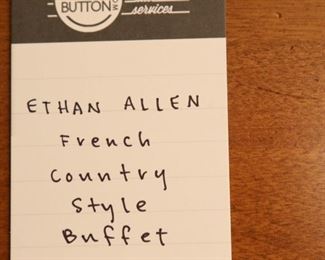 BUTTON
services
ETHAN ALLEN
French
Country
Style
Buffet